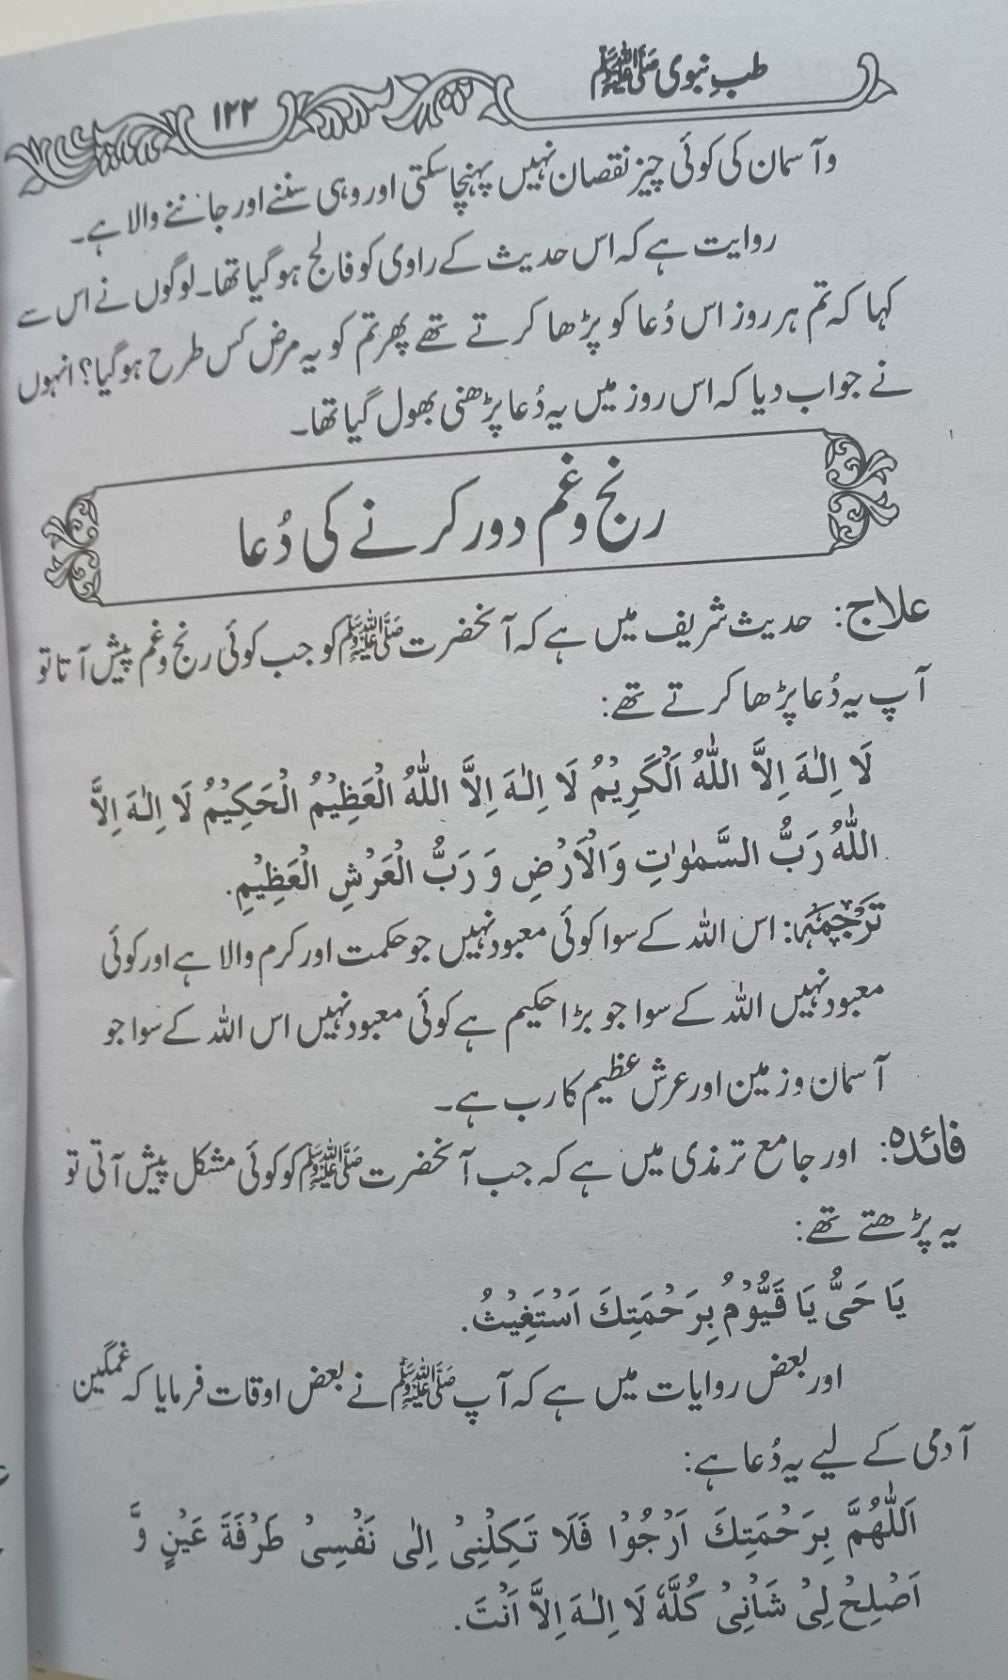 طبِ نبوی ﷺ
۱۲۲
وآسمان کی کوئی چیز نقصان نہیں پہنچا سکتی اور وہی سننے اور جاننے والا ہے۔
روایت ہے کہ اس حدیث کے راوی کو فالج ہو گیا تھا۔ لوگوں نے اس سے
کہا کہ تم ہر روز اس دُعا کو پڑھا کرتے تھے پھر تم کو یہ مرض کس طرح ہو گیا؟ انہوں
نے جواب دیا کہ اس روز میں یہ دُعا پڑھنی بھول گیا تھا۔
رنج وغم دور کرنے کی دُعا
علاج: حدیث شریف میں ہے کہ آنحضرت ﷺ کو جب کوئی رنج وغم پیش آتا تو
آپ یہ دُعا پڑھا کرتے تھے:
لَا اِلٰهَ اِلَّا اللّٰهُ الْكَرِيْمُ لَا اِلٰهَ اِلَّا اللّٰهُ الْعَظِيْمُ الْحَكِيْمُ لَا اِلٰهَ اِلَّا
اللّٰهُ رَبُّ السَّمٰوٰتِ وَالْاَرْضِ وَ رَبُّ الْعَرْشِ الْعَظِيْمِ.
تَرْجَمَہ: اس اللہ کے سوا کوئی معبود نہیں جو حکمت اور کرم والا ہے اور کوئی
معبود نہیں اللہ کے سوا جو بڑا حکیم ہے کوئی معبود نہیں اس اللہ کے سوا جو
آسمان وزمین اور عرش عظیم کا رب ہے۔
فائدہ: اور جامع ترمذی میں ہے کہ جب آنحضرت ﷺ کو کوئی مشکل پیش آتی تو
یہ پڑھتے تھے:
يَا حَيُّ يَا قَيُّوْمُ بِرَحْمَتِكَ اَسْتَغِيْثُ.
اور بعض روایات میں ہے کہ آپ ﷺ نے بعض اوقات فرمایا کہ غمگین
آدمی کے لیے یہ دُعا ہے:
اَللّٰهُمَّ بِرَحْمَتِكَ اَرْجُوْا فَلَا تَكِلْنِىْ اِلٰى نَفْسِىْ طَرْفَةَ عَيْنٍ وَّ
اَصْلِحْ لِىْ شَاْنِىْ كُلَّهٗ لَا اِلٰهَ اِلَّا اَنْتَ.